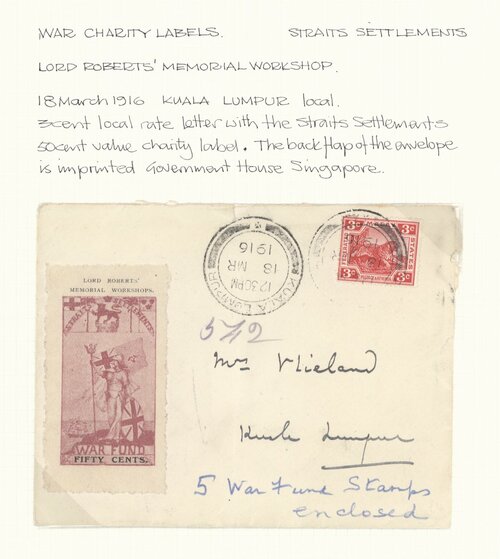 WAR CHARITY LABELS. STRAITS SETTLEMENTS
LORD ROBERTS' MEMORIAL WORKSHOP.
18 March 1916 KUALA LUMPUR local.
3cent local rate letter with the Straits Settlements
50cent value charity label. The back flap of the envelope
is imprinted Government House Singapore.
KUALA LUMPUR
12.30PM
18 MR
1916
FEDERATED MALAY STATES
3c 3c
3c 3c
LORD ROBERTS'
MEMORIAL WORKSHOPS.
STRAITS SETTLEMENTS
WAR FUND
FIFTY CENTS.
542
Mrs Vlieland
Kuala Lumpur
5 War Fund Stamps
enclosed